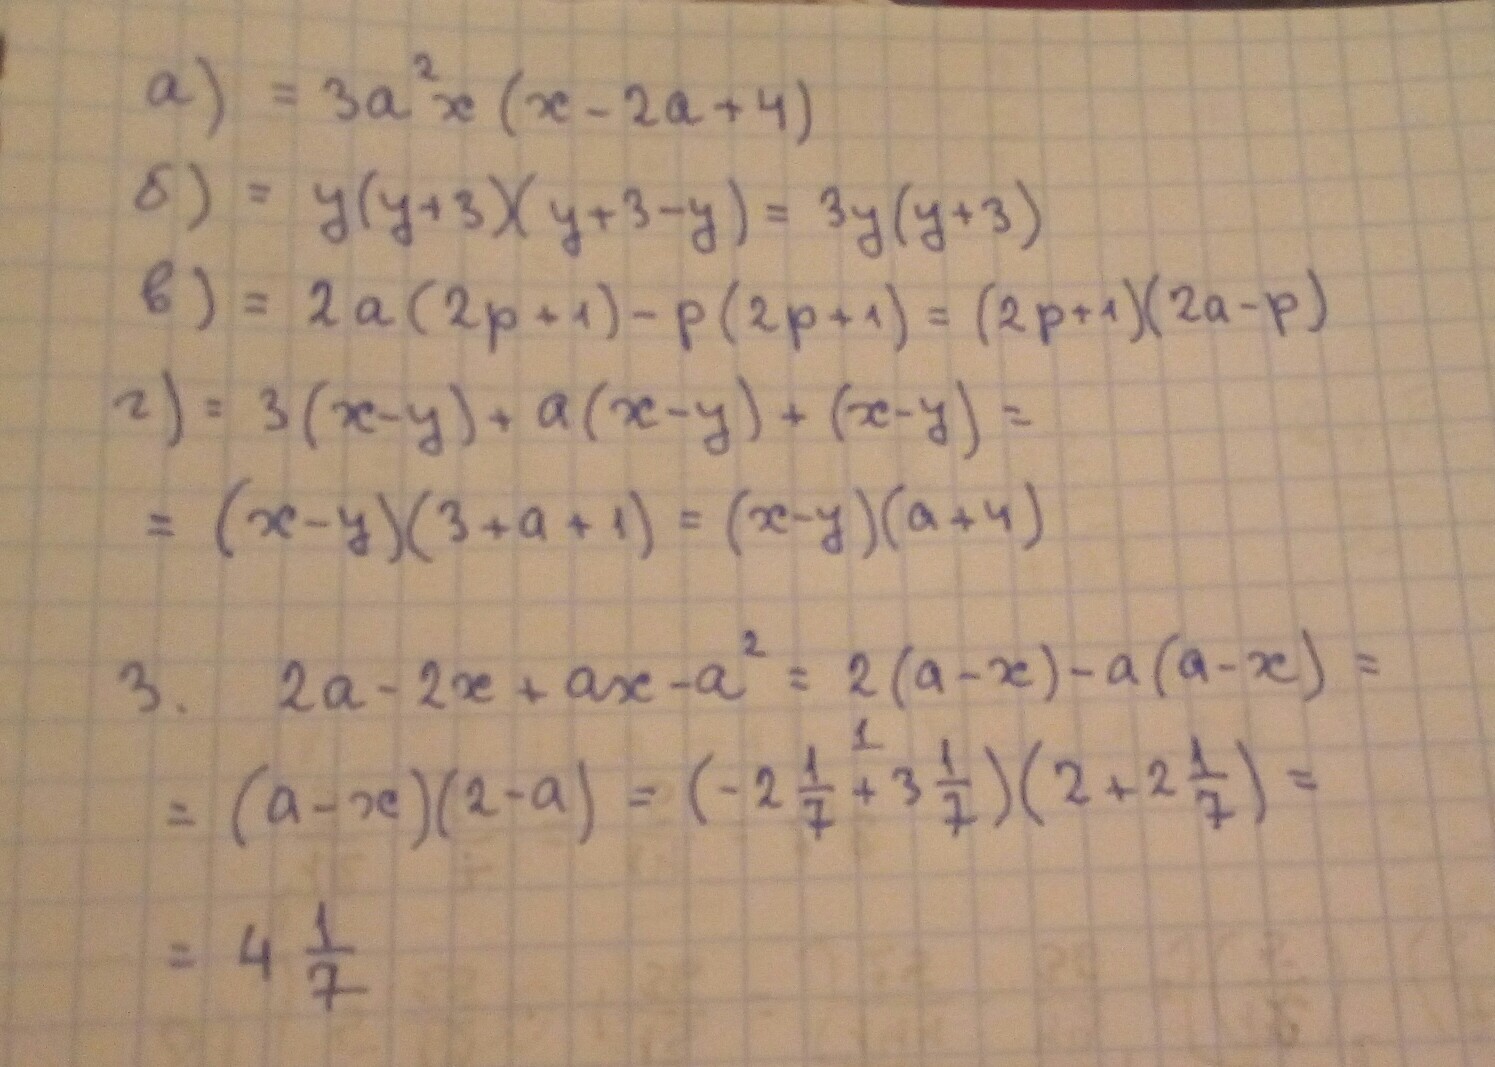 а) = 3a²x(x-2a+4)
б) = y(y+3)(y+3-y) = 3y(y+3)
в) = 2a(2p+1)-p(2p+1) = (2p+1)(2a-p)
г) = 3(x-y)+a(x-y)+(x-y) =
= (x-y)(3+a+1) = (x-y)(a+4)
3. 2a-2x+ax-a² = 2(a-x)-a(a-x) =
1
= (a-x)(2-a) = (-2 1/7 + 3 1/7)(2+2 1/7) =
= 4 1/7